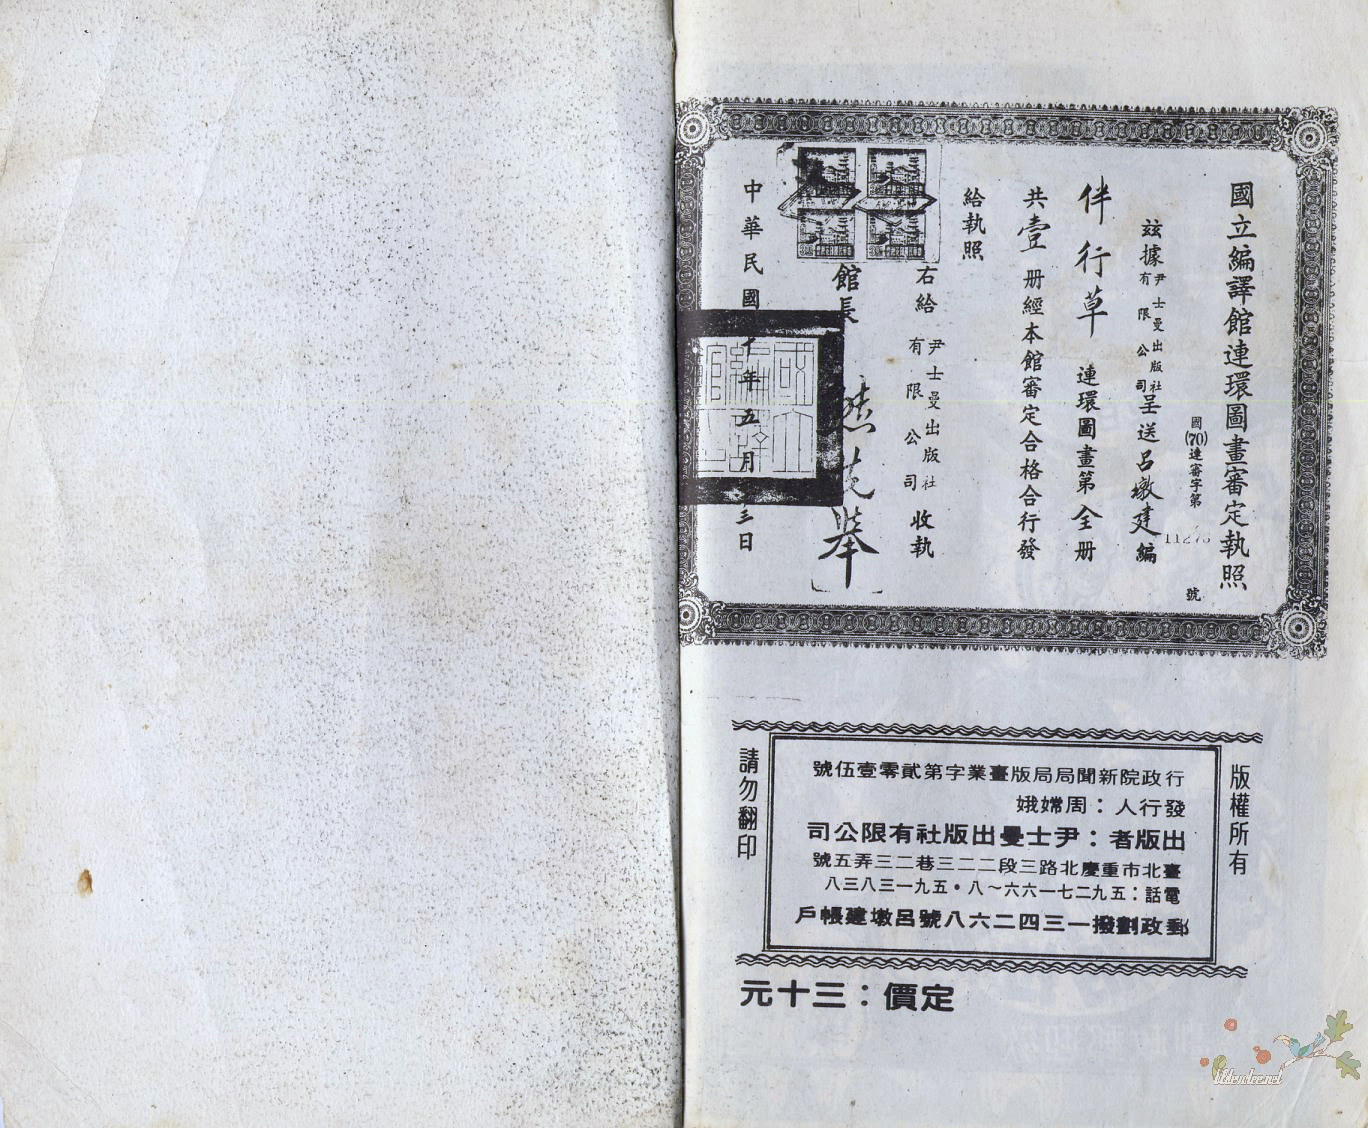 國立編譯館連環圖畫審定執照
國(70)連審字第 號
茲據尹士曼出版社有限公司呈送呂墩建編
伴行草 連環圖畫第全册
共壹册經本館審定合格合行發
給執照
右給 尹士曼出版社有限公司 收執
館長
中華民國 十年五月 三日
版權所有
行政院新聞局局版臺業字第貳零壹伍號
發行人：周嫦娥
出版者：尹士曼出版社有限公司
臺北市重慶北路三段二二三巷二三弄五號
電話：五九二七一六六～八・五九一三八三八
郵政劃撥一三四二六八號呂墩建帳戶
請勿翻印
定價：三十元